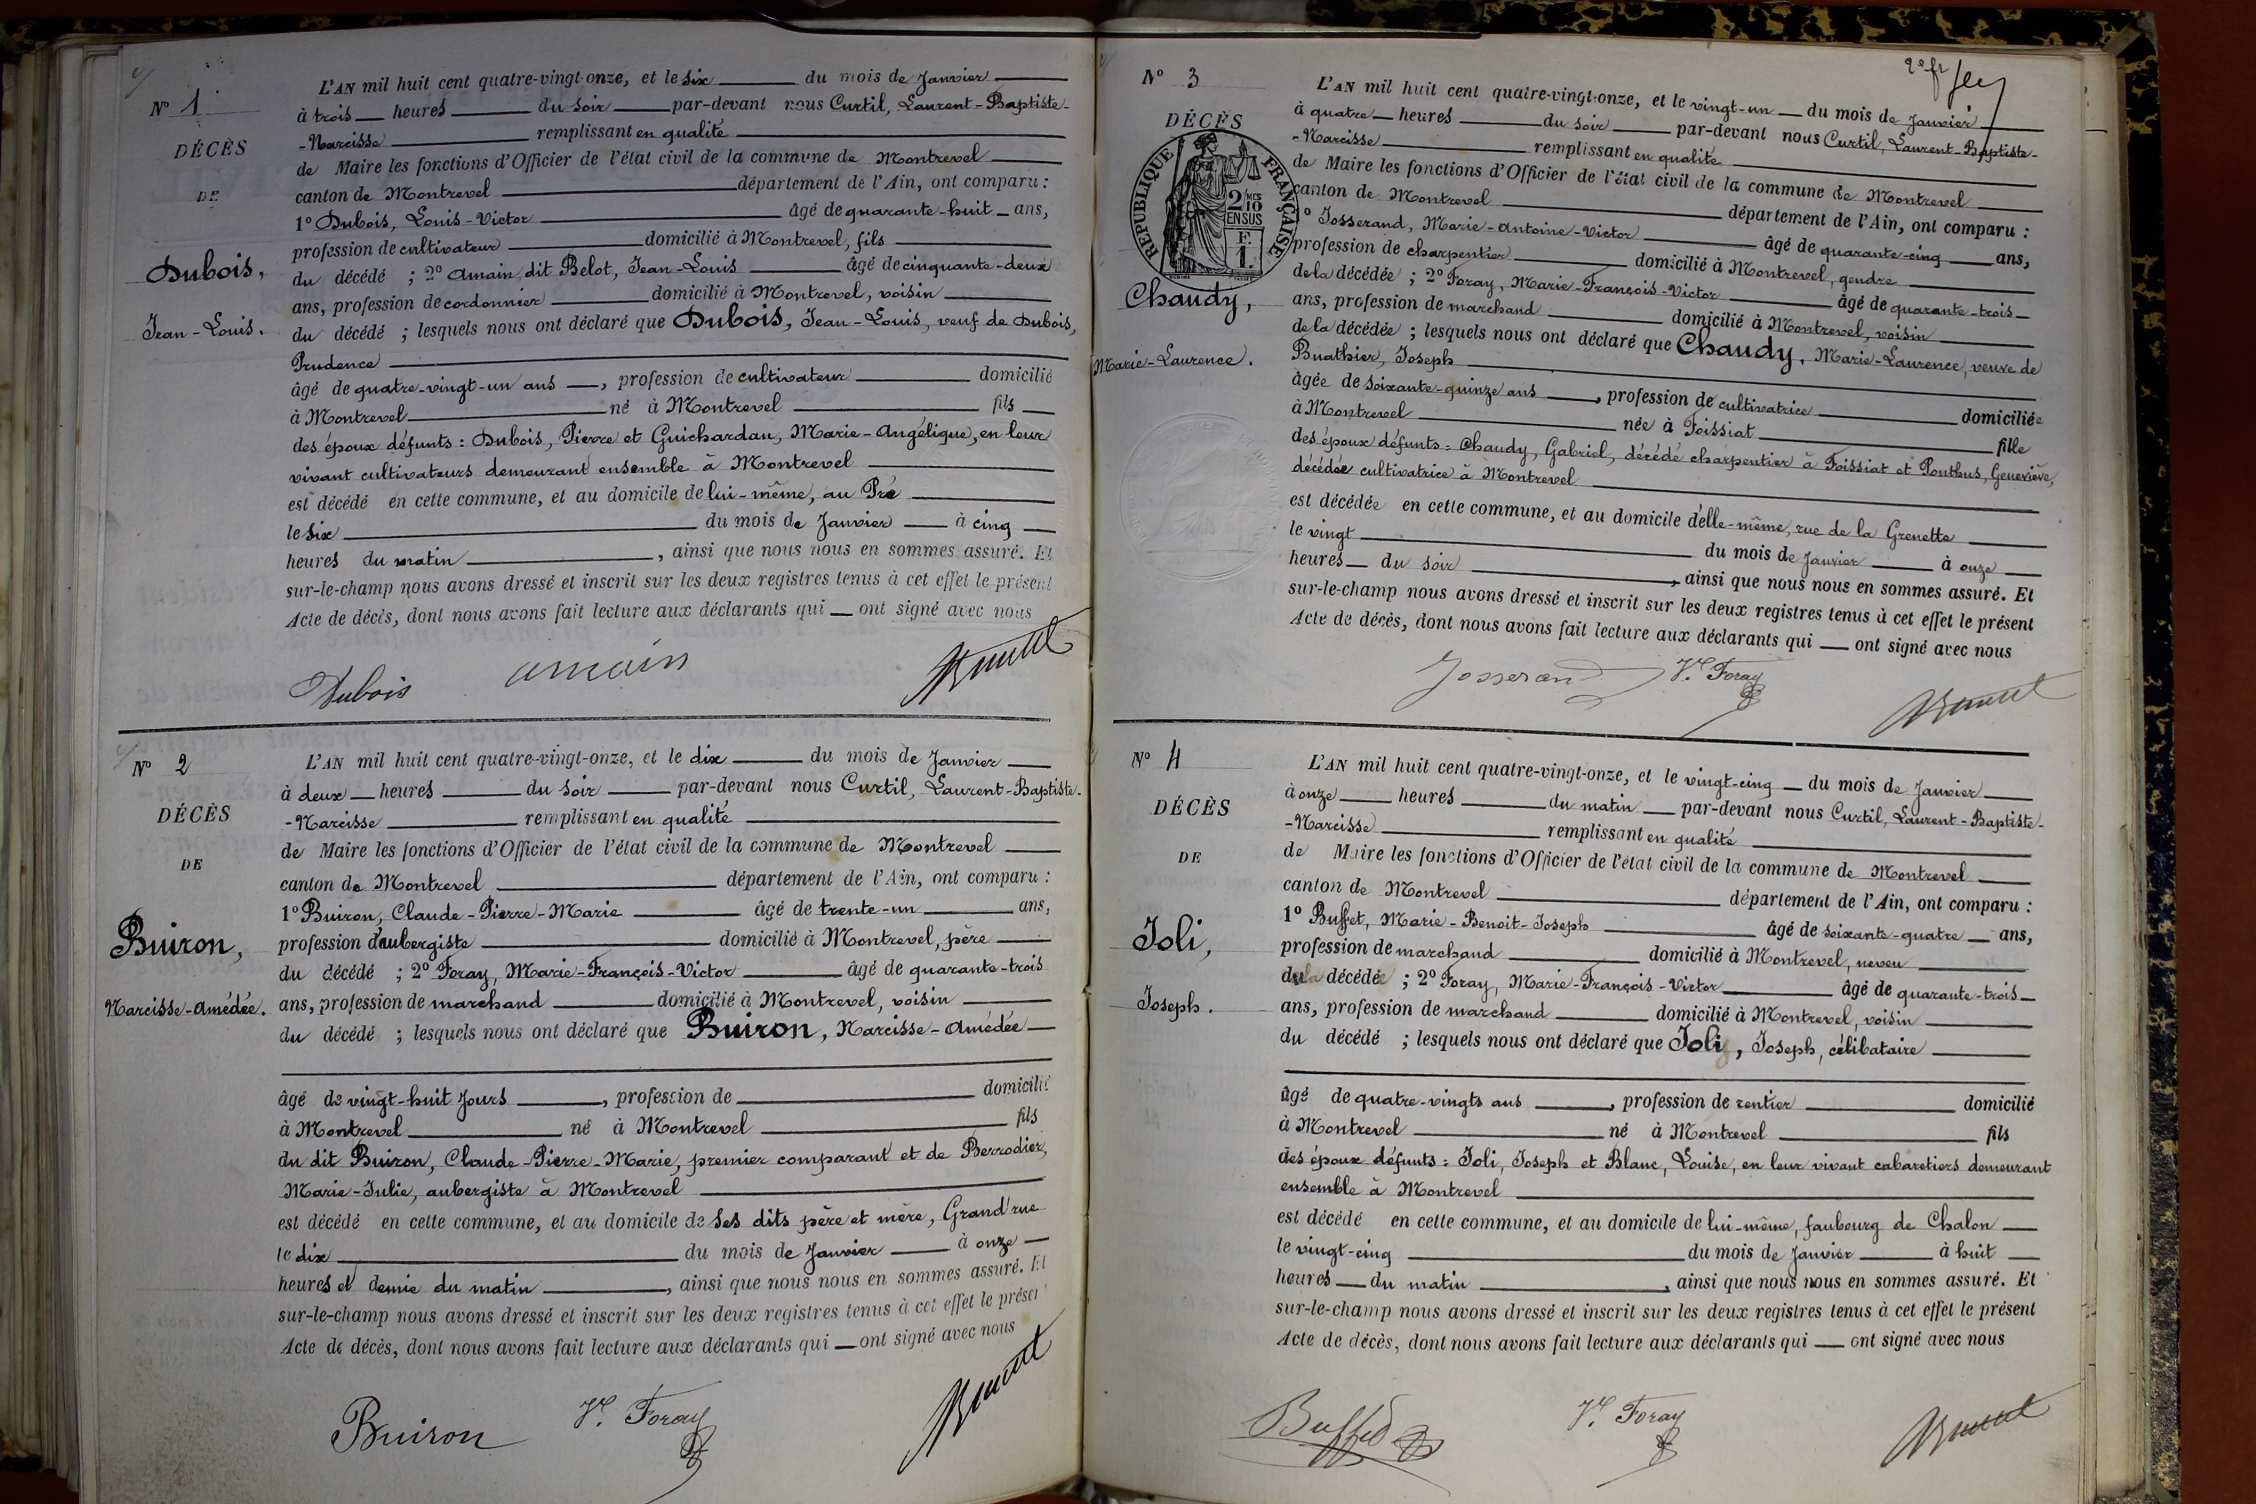 N° 1
DÉCÈS
DE
Dubois,
Jean-Louis.
L'AN mil huit cent quatre-vingt-onze, et le six du mois de Janvier
à trois heures du soir par-devant nous Curtil, Laurent-Baptiste-
-Narcisse remplissant en qualité
de Maire les fonctions d'Officier de l'état civil de la commune de Montrevel
canton de Montrevel département de l'Ain, ont comparu :
1° Dubois, Louis-Victor âgé de quarante-huit ans,
profession de cultivateur domicilié à Montrevel, fils
du décédé ; 2° Amain dit Belot, Jean-Louis âgé de cinquante-deux
ans, profession de cordonnier domicilié à Montrevel, voisin
du décédé ; lesquels nous ont déclaré que Dubois, Jean-Louis, veuf de Dubois,
Prudence
âgé de quatre-vingt-un ans, profession de cultivateur domicilié
à Montrevel né à Montrevel fils
des époux défunts : Dubois, Pierre et Guichardan, Marie-Angélique, en leur
vivant cultivateurs demeurant ensemble à Montrevel
est décédé en cette commune, et au domicile de lui-même, au Pré
le six du mois de Janvier à cinq
heures du matin, ainsi que nous nous en sommes assuré. Et
sur-le-champ nous avons dressé et inscrit sur les deux registres tenus à cet effet le présent
Acte de décès, dont nous avons fait lecture aux déclarants qui ont signé avec nous
Dubois amain
N° 2
DÉCÈS
DE
Buiron,
Narcisse-Amédée.
L'AN mil huit cent quatre-vingt-onze, et le dix du mois de Janvier
à deux heures du soir par-devant nous Curtil, Laurent-Baptiste-
-Narcisse remplissant en qualité
de Maire les fonctions d'Officier de l'état civil de la commune de Montrevel
canton de Montrevel département de l'Ain, ont comparu :
1° Buiron, Claude-Pierre-Marie âgé de trente-un ans,
profession d'aubergiste domicilié à Montrevel, père
du décédé ; 2° Foray, Marie-François-Victor âgé de quarante-trois
ans, profession de marchand domicilié à Montrevel, voisin
du décédé ; lesquels nous ont déclaré que Buiron, Narcisse-Amédée
âgé de vingt-huit Jours, profession de domicilié
à Montrevel né à Montrevel fils
du dit Buiron, Claude-Pierre-Marie, premier comparant et de Berrodier,
Marie-Julie, aubergiste à Montrevel
est décédé en cette commune, et au domicile de ses dits père et mère, Grand'rue
le dix du mois de Janvier à onze
heures et demie du matin, ainsi que nous nous en sommes assuré. Et
sur-le-champ nous avons dressé et inscrit sur les deux registres tenus à cet effet le présen
Acte de décès, dont nous avons fait lecture aux déclarants qui ont signé avec nous
Buiron Vr. Foray
N° 3
DÉCÈS
RÉPUBLIQUE FRANÇAISE
2 MES
10
EN SUS
F.
1.
Chaudy,
Marie-Laurence.
L'AN mil huit cent quatre-vingt-onze, et le vingt-un du mois de Janvier
à quatre heures du soir par-devant nous Curtil, Laurent-Baptiste-
-Narcisse remplissant en qualité
de Maire les fonctions d'Officier de l'état civil de la commune de Montrevel
canton de Montrevel département de l'Ain, ont comparu :
° Josserand, Marie-Antoine-Victor âgé de quarante-cinq ans,
profession de charpentier domicilié à Montrevel, gendre
de la décédée ; 2° Foray, Marie-François-Victor âgé de quarante-trois
ans, profession de marchand domicilié à Montrevel, voisin
de la décédée ; lesquels nous ont déclaré que Chaudy, Marie-Laurence, veuve de
Buathier, Joseph
âgée de soixante-quinze ans, profession de cultivatrice domiciliée
à Montrevel née à Foissiat fille
des époux défunts : Chaudy, Gabriel, décédé charpentier à Foissiat et Ponthus, Geneviève,
décédée cultivatrice à Montrevel
est décédée en cette commune, et au domicile d'elle-même, rue de la Grenette
le vingt du mois de Janvier à onze
heures du soir, ainsi que nous nous en sommes assuré. Et
sur-le-champ nous avons dressé et inscrit sur les deux registres tenus à cet effet le présent
Acte de décès, dont nous avons fait lecture aux déclarants qui ont signé avec nous
Josserand Vr. Foray
N° 4
DÉCÈS
DE
Joli,
Joseph.
L'AN mil huit cent quatre-vingt-onze, et le vingt-cinq du mois de Janvier
à onze heures du matin par-devant nous Curtil, Laurent-Baptiste-
-Narcisse remplissant en qualité
de Maire les fonctions d'Officier de l'état civil de la commune de Montrevel
canton de Montrevel département de l'Ain, ont comparu :
1° Buffet, Marie-Benoit-Joseph âgé de soixante-quatre ans,
profession de marchand domicilié à Montrevel, neveu
du décédé ; 2° Foray, Marie-François-Victor âgé de quarante-trois
ans, profession de marchand domicilié à Montrevel, voisin
du décédé ; lesquels nous ont déclaré que Joli, Joseph, célibataire
âgé de quatre-vingts ans, profession de rentier domicilié
à Montrevel né à Montrevel fils
des époux défunts : Joli, Joseph et Blanc, Louise, en leur vivant cabaretiers demeurant
ensemble à Montrevel
est décédé en cette commune, et au domicile de lui-même, faubourg de Chalon
le vingt-cinq du mois de Janvier à huit
heures du matin, ainsi que nous nous en sommes assuré. Et
sur-le-champ nous avons dressé et inscrit sur les deux registres tenus à cet effet le présent
Acte de décès, dont nous avons fait lecture aux déclarants qui ont signé avec nous
Buffet Vr. Foray